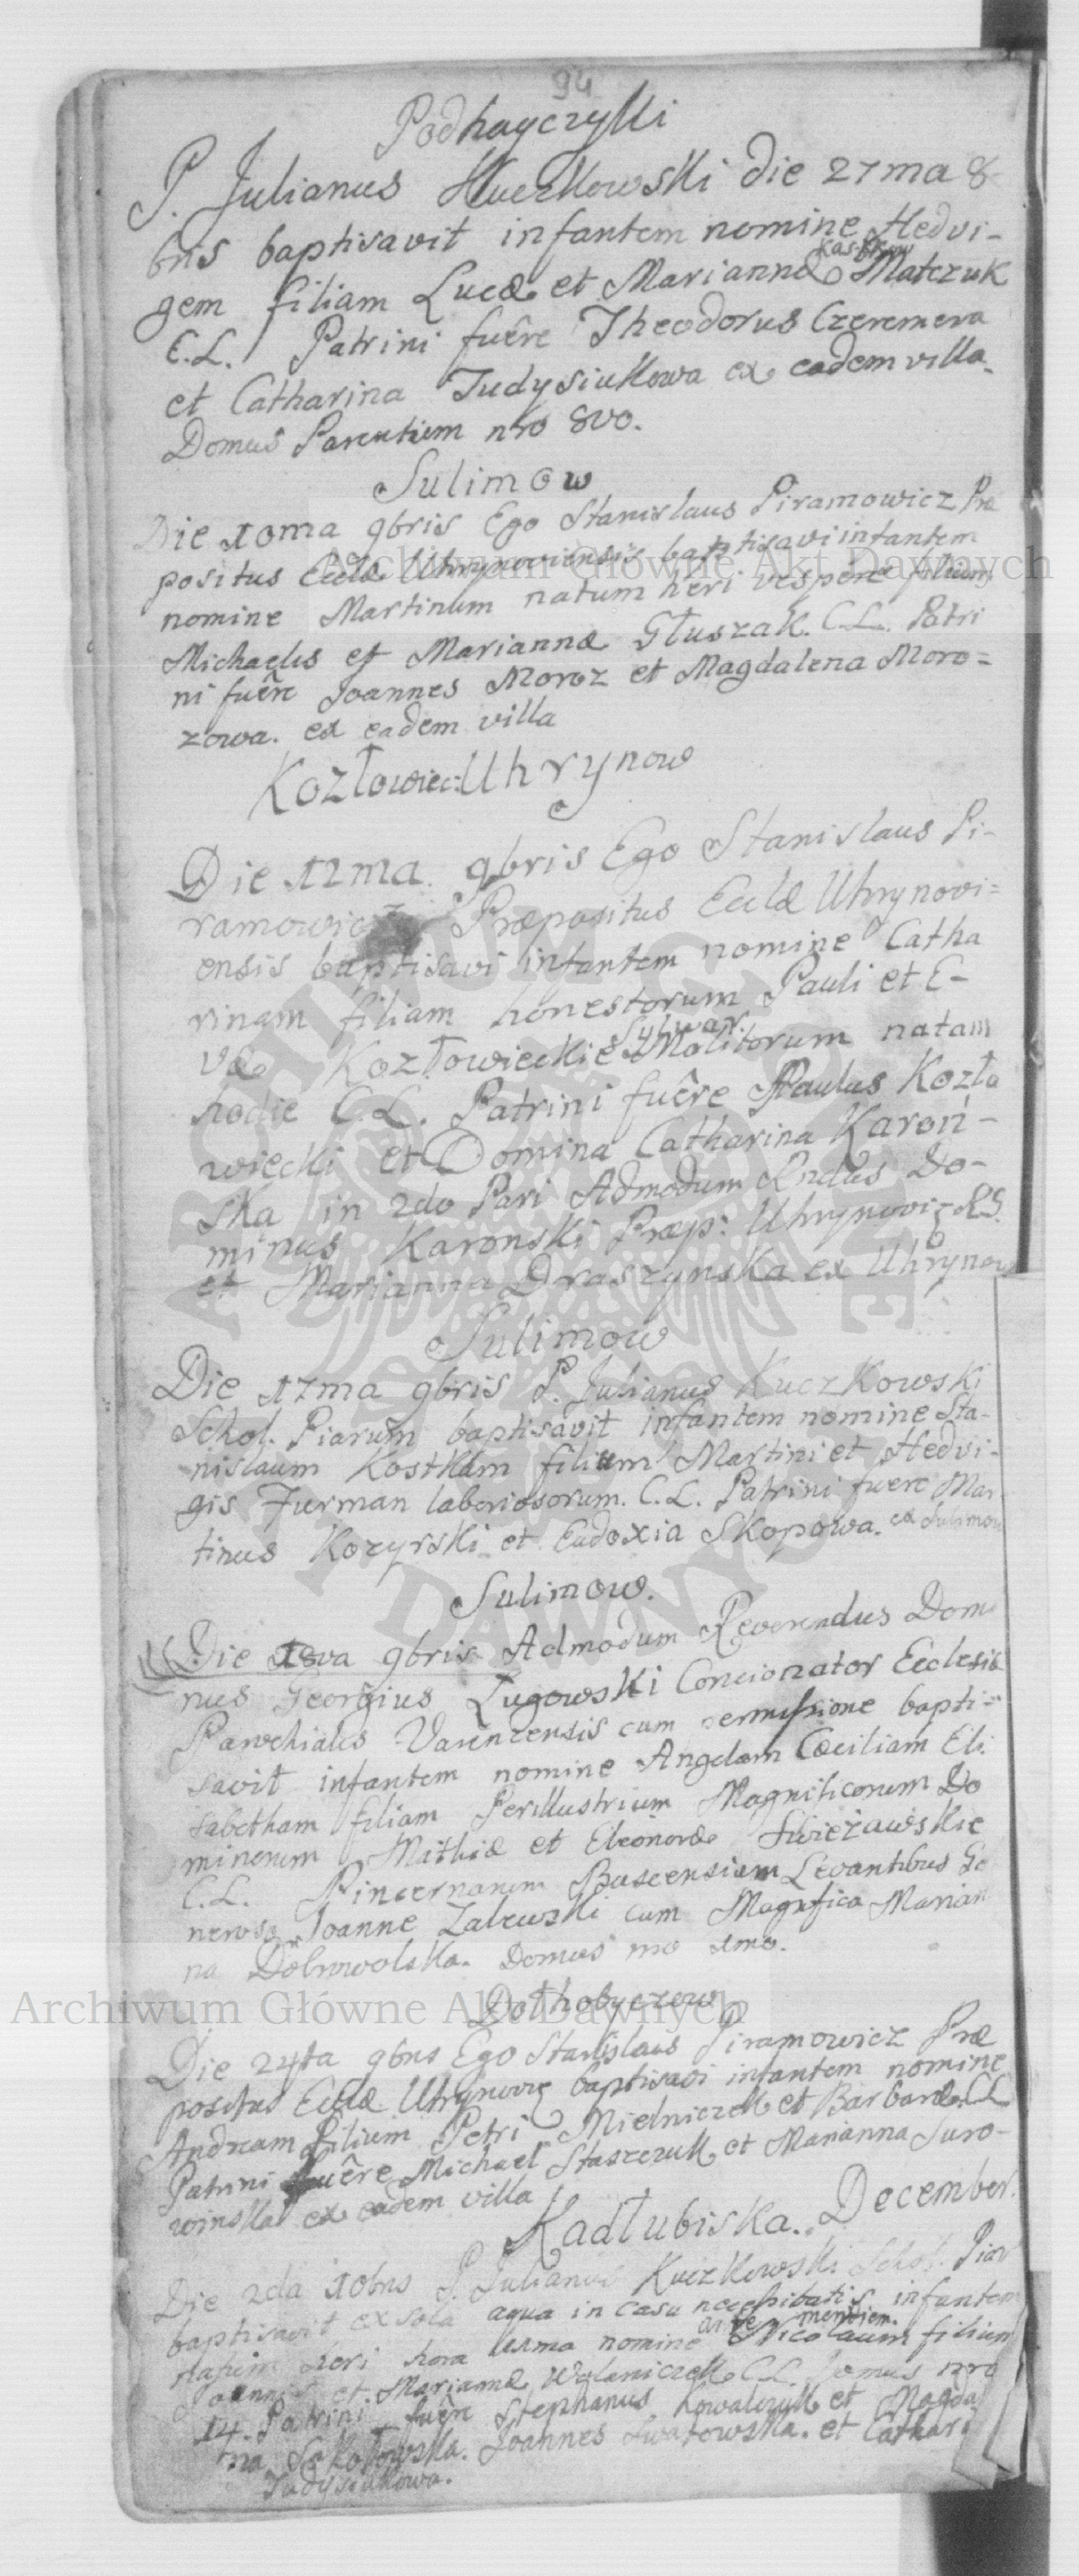 94
Podhayczyki
P. Julianus Kuczkowski die 27ma 8-
bris baptisavit infantem nomine Hedvi-
gem filiam Lucæ et Mariannæ Matczuk
C.L. Patrini fuêre Theodorus Czeremera
et Catharina Judysiukowa ex eadem villa.
Domus Parentum nro 8vo.
Sulimow
Die 10ma 9bris Ego Stanislaus Piramowicz Præ
positus Eccłæ Uhrynoviensis baptisavi infantem
nomine Martinum natum heri vespere filium
Michaelis et Mariannæ Głuszak. C.L. Patri
ni fuêre Joannes Moroz et Magdalena Moro=
zowa. ex eadem villa
Kozłowiec: Uhrynow
Die 12ma. 9bris Ego Stanislaus Pi-
ramowicz Præpositus Eccłæ Uhrynovi=
ensis baptisavi infantem nomine Catha
rinam filiam honestorum Pauli et E-
væ Kozłowieckie Molitorum natam
hodie C.L. Patrini fuêre Paulus Kozło
wiecki et Domina Catharina Karoń-
ska in 2do Pari Admodum Rndus Do-
minus Karonski Præp: Uhrynovi: R.S.
et Marianna Draszynska ex Uhrynow
Sulimow
Die 17ma 9bris P. Julianus Kuczkowski
Schol. Piarum baptisavit infantem nomine Sta-
nislaum Kostkam filium Martini et Hedvi-
gis Furman laboriosorum. C.L. Patrini fuere Mar
tinus Kozyrski et Eudoxia Skopowa. ex Sulimow
Sulimow.
Die 18va 9bris Admodum Reverendus Domi
nus Georgius Ługowski Concionator Ecclesiæ
Parochialis Varenzensis cum permissione bapti=
savit infantem nomine Angelam Cæciliam Eli
sabetham filiam Perillustrium Magnificorum Do
minorum Mathiæ et Eleonoræ Swiezawskie
C.L. Pincernarum Buscensium Levantibus Ge
neroso Joanne Zalewski cum Magnifica Marian
na Dobrowolska. Domus nro 1mo.
Dołhobyczow
Die 24ta 9bris Ego Stanislaus Piramowicz Præ
positus Eccłæ Uhrynovie baptisavi infantem nomine
Andream filium Petri Mielniczek et Barbaræ. C.L
Patrini fuêre Michael Staszczuk et Marianna Suro-
winska ex eadem villa
Kadłubiska. December.
Die 2da 10bris P. Julianus Kuczkowski Schol. Piar
baptisavit ex sola aqua in casu necessitatis infantem
natum heri hora nomine Nicolaum filium
Joannis et Mariannæ Wolaniczek C.L. Domus nro
14. Patrini fuêre Stephanus Kowalczyk et Magda
na Sokołowska. Joannes et Cathari
Judysiukowa.
Archiwum Główne Akt Dawnych
Archiwum Główne Akt Dawnych